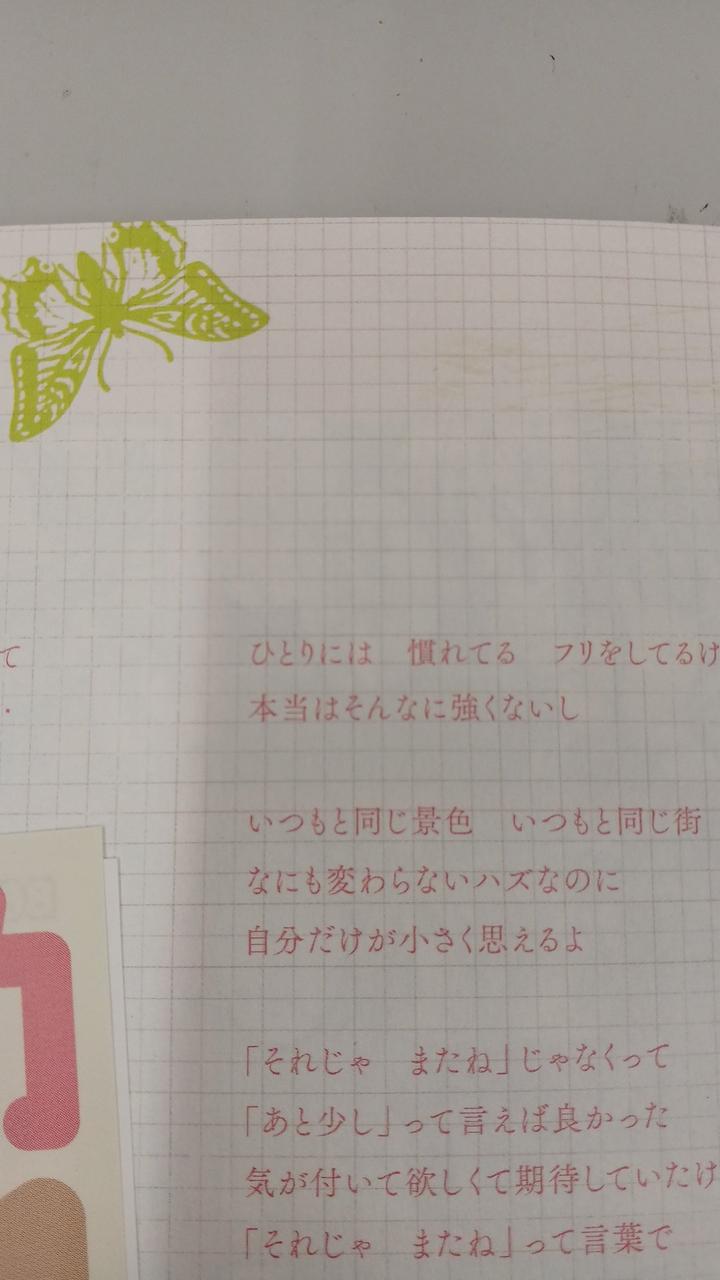 て
ひとりには　慣れてる　フリをしてるけ
本当はそんなに強くないし
いつもと同じ景色　いつもと同じ街
なにも変わらないハズなのに
自分だけが小さく思えるよ
「それじゃ　またね」じゃなくって
「あと少し」って言えば良かった
気が付いて欲しくて期待していたけ
「それじゃ　またね」って言葉で